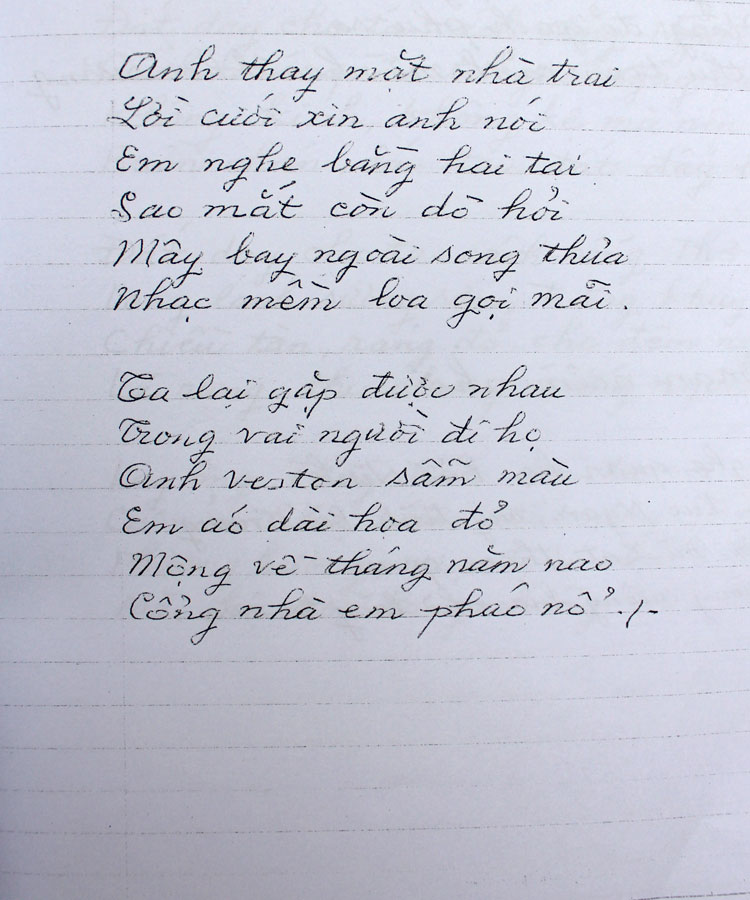 Anh thay mặt nhà trai
Lời cuối xin anh nói
Em nghe bằng hai tai
Sao mắt còn dò hỏi
Mây bay ngoài song thưa
Nhạc mềm loa gọi mãi.
Ta lại gặp được nhau
Trong vai người đi họ
Anh veston sẫm màu
Em áo dài hoa đỏ
Mộng về tháng năm nao
Cổng nhà em pháo nổ ./-